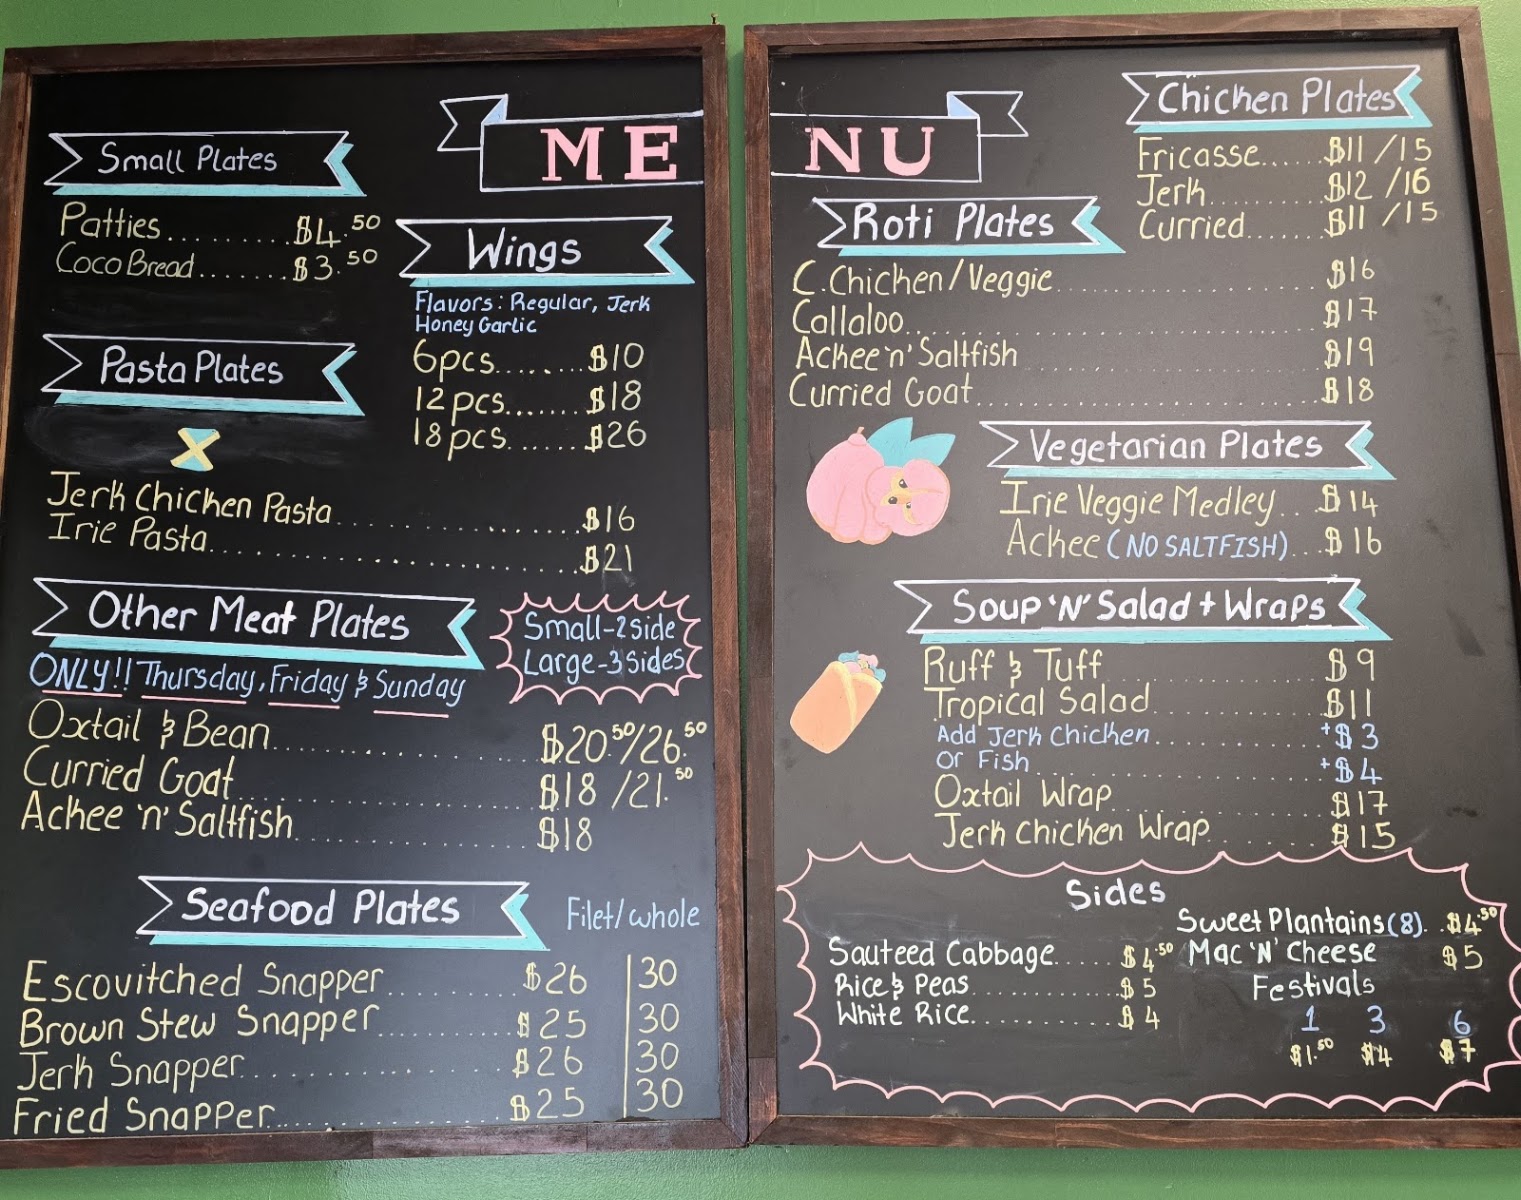 ME
Small Plates
Patties.........$4.50
Coco Bread.......$3.50
Wings
Flavors: Regular, Jerk
Honey Garlic
6pcs........$10
12pcs.......$18
18pcs.......$26
Pasta Plates
Jerk Chicken Pasta..................$16
Irie Pasta..............................$21
Other Meat Plates
Small-2side
Large-3sides
ONLY!! Thursday, Friday & Sunday
Oxtail & Bean.....................$20.50/26.50
Curried Goat.......................$18/21.50
Ackee 'n' Saltfish..................$18
Seafood Plates
Filet/whole
Escovitched Snapper..........$26 | 30
Brown Stew Snapper..........$25 | 30
Jerk Snapper...................$26 | 30
Fried Snapper..................$25 | 30
NU
Chicken Plates
Fricasse......$11/15
Jerk...........$12/16
Curried.......$11/15
Roti Plates
C.Chicken/Veggie....................$16
Callaloo..............................$17
Ackee 'n' Saltfish....................$19
Curried Goat.........................$18
Vegetarian Plates
Irie Veggie Medley...$14
Ackee (NO SALTFISH)...$16
Soup 'N' Salad + Wraps
Ruff & Tuff.................$9
Tropical Salad.............$11
Add Jerk Chicken...........+$3
or Fish.....................+$4
Oxtail Wrap................$17
Jerk Chicken Wrap.........$15
Sides
Sauteed Cabbage.....$4.50
Rice & Peas............$5
White Rice.............$4
Sweet Plantains(8)...$4.50
Mac 'N' Cheese $5
Festivals
1 3 6
$1.50 $4 $7